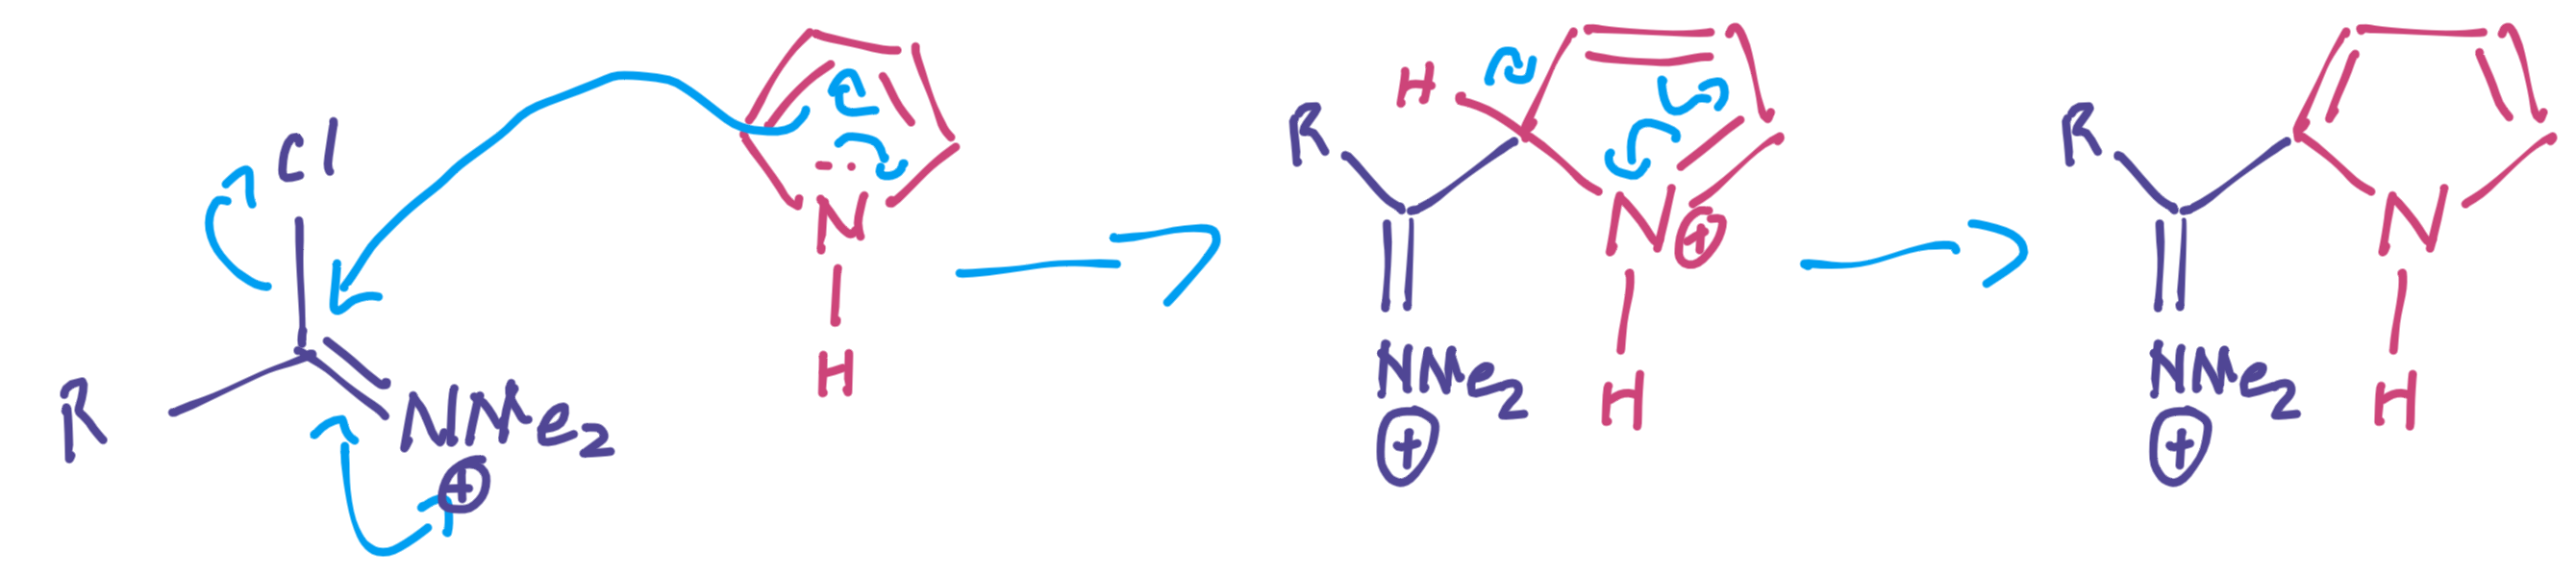 Cl
R
NMe2
⊕
N
H
H
R
N
⊕
NMe2
⊕
H
R
N
NMe2
⊕
H